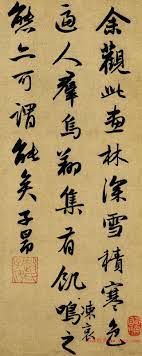 余觀此畫林深雪積寒色
逼人群烏翔集有飢鳴之
態亦可謂能矣子昂
凍哀